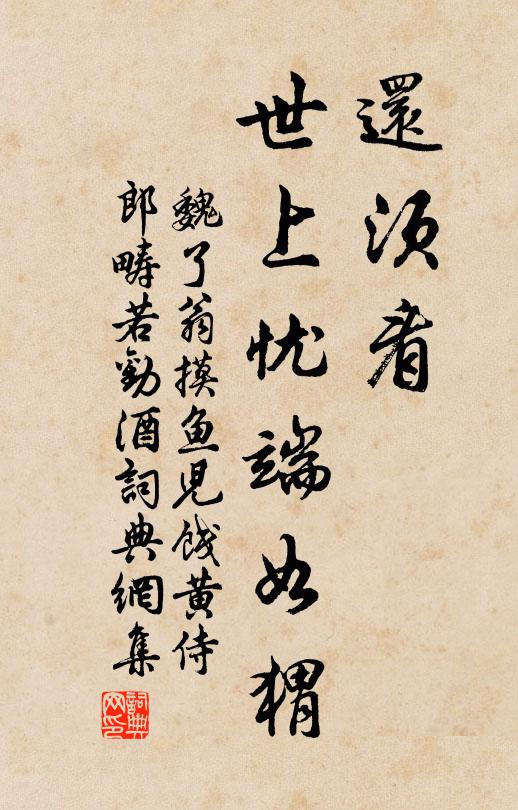 還須看
世上忧端如猬
魏了翁摸鱼兒饯黄侍
郎畴若勸酒詞典網集
詞典网印